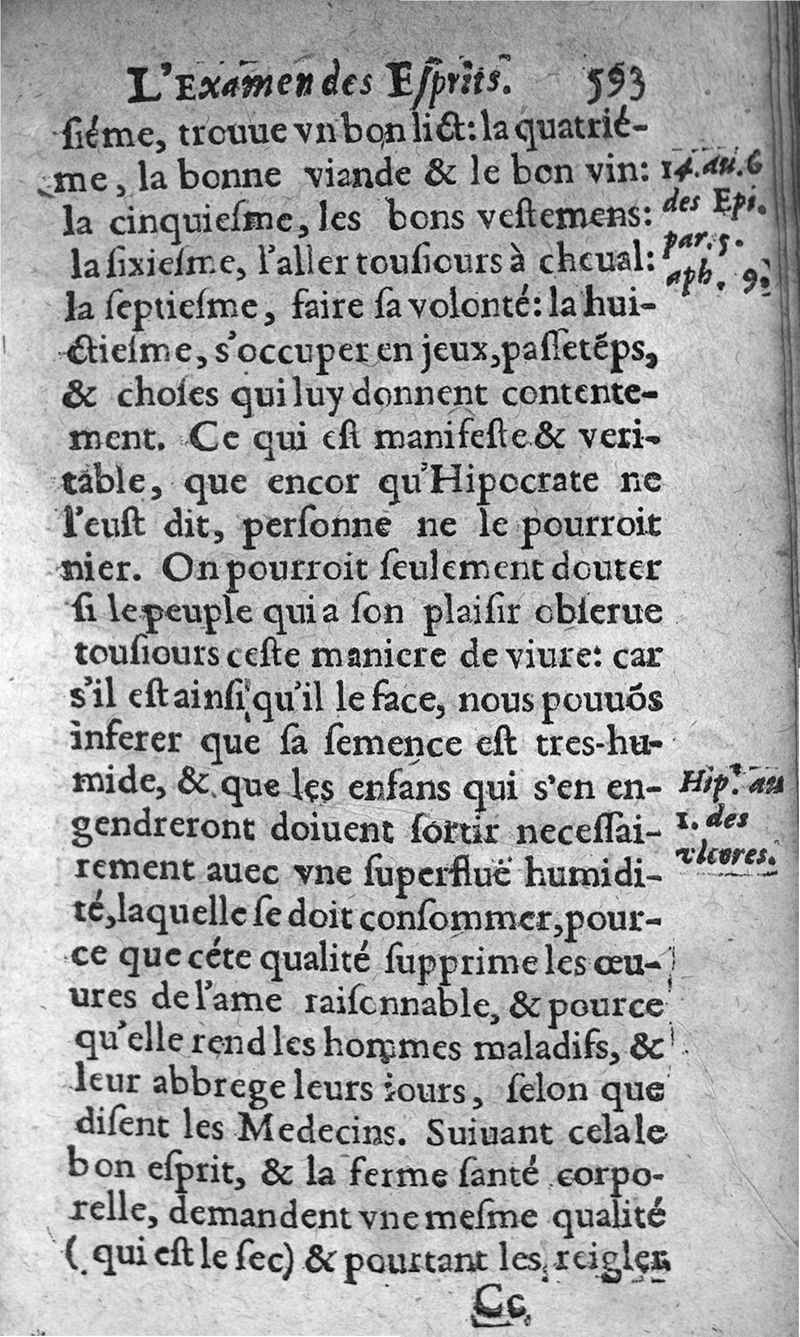 L'Examen des Eſprits. 593
ſiéme, trouue vn bon lict: la quatrié-
me, la bonne viande & le bon vin:
la cinquieſme, les bons veſtemens:
la ſixieſme, l'aller touſiours à cheual:
la ſeptieſme, faire ſa volonté: la hui-
ctieſme, s'occuper en jeux, paſſetẽps,
& choſes qui luy donnent contente-
ment. Ce qui eſt manifeſte & veri-
table, que encor qu'Hipocrate ne
l'euſt dit, perſonne ne le pourroit
nier. On pourroit ſeulement douter
ſi le peuple qui a ſon plaiſir obſerue
touſiours ceſte maniere de viure: car
s'il eſt ainſi qu'il le face, nous pouuõs
inferer que ſa ſemence eſt tres-hu-
mide, & que les enfans qui s'en en-
gendreront doiuent ſortir neceſſai-
rement auec vne ſuperfluë humidi-
té, laquelle ſe doit conſommer, pour-
ce que céte qualité ſupprime les œu-
ures de l'ame raiſonnable, & pource
qu'elle rend les hommes maladifs, &
leur abbrege leurs iours, ſelon que
diſent les Medecins. Suiuant cela le
bon eſprit, & la ferme ſanté corpo-
relle, demandent vne meſme qualité
(qui eſt le ſec) & pourtant les reigles
Cc
14. au. 6
des Epi.
par. 5.
aph. 9.
Hip. au
1. des
vlceres.